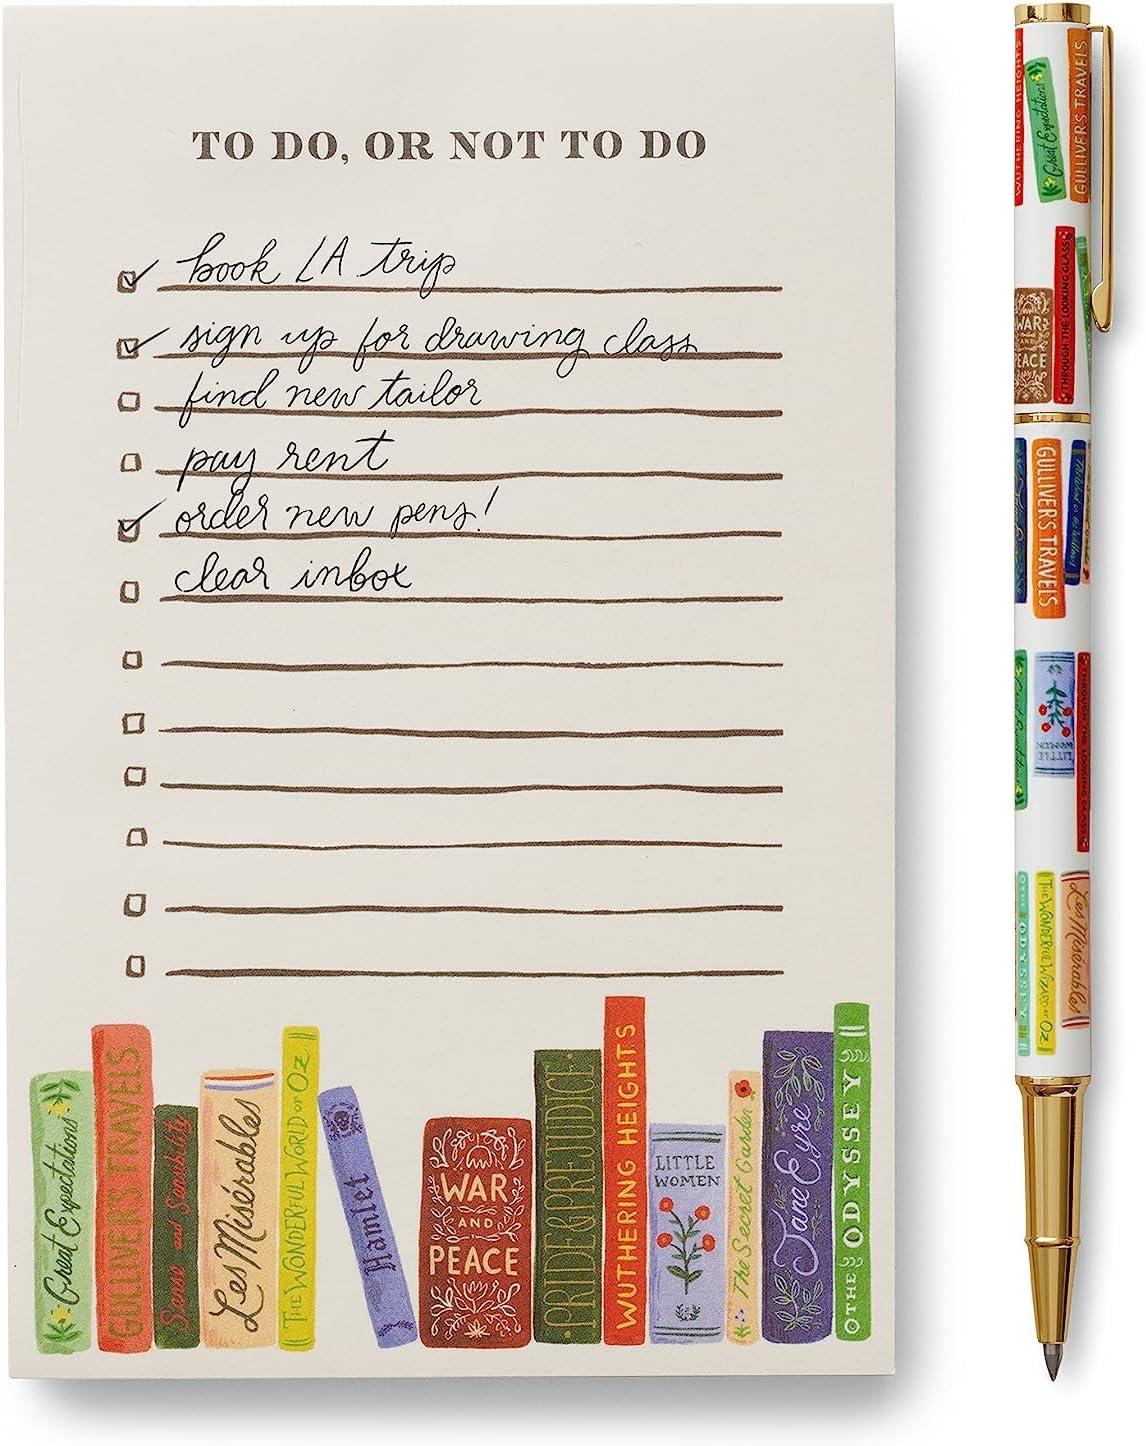 TO DO, OR NOT TO DO
book LA trip
sign up for drawing class
find new tailor
pay rent
order new pens!
clear inbox
Great Expectations
GULLIVER'S TRAVELS
Sense and Sensibility
Les Misérables
THE WONDERFUL WORLD OF OZ
Hamlet
WAR
AND
PEACE
PRIDE & PREJUDICE
WUTHERING HEIGHTS
LITTLE
WOMEN
The Secret Garden
Jane Eyre
THE ODYSSEY
WUTHERING HEIGHTS
Great Expectations
GULLIVER'S TRAVELS
WAR
AND
PEACE
THROUGH THE LOOKING GLASS
GULLIVER'S TRAVELS
The Wind in the Willows
Great Expectations
LITTLE
WOMEN
THROUGH THE LOOKING GLASS
THE ODYSSEY
THE WONDERFUL WIZARD OF OZ
Les Misérables